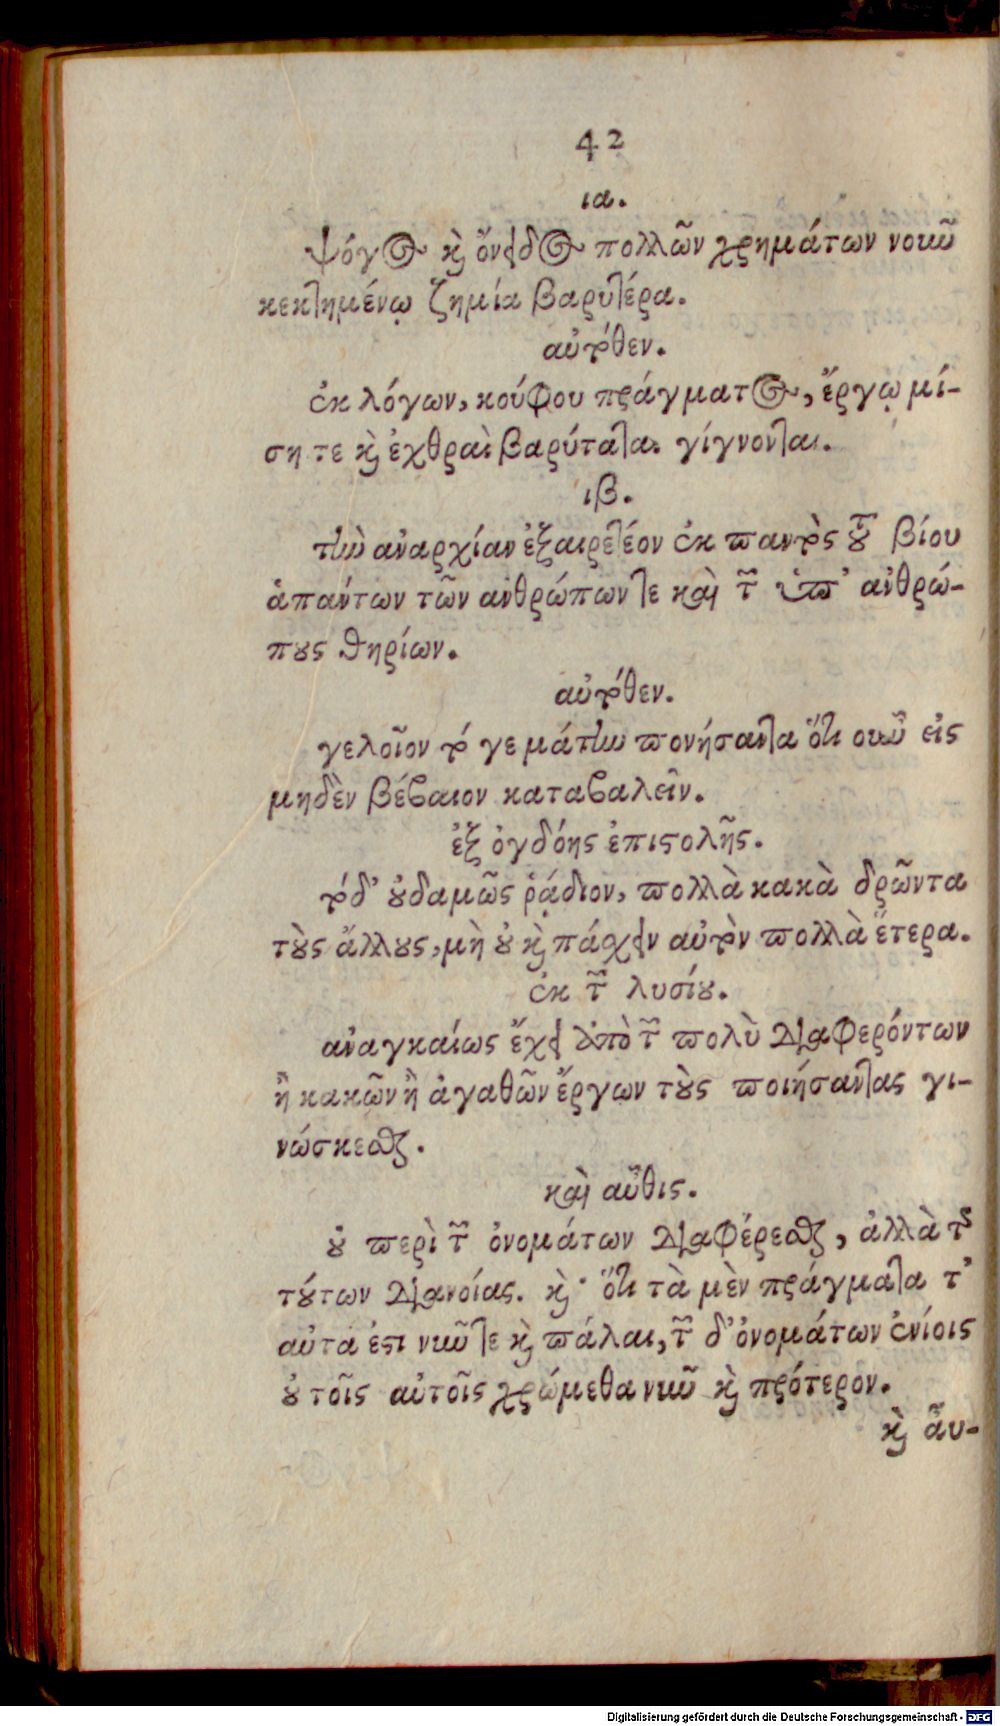 42
ια.
ψόγος καὶ ὄνειδος πολλῶν χρημάτων νοῦν
κεκτημένῳ ζημία βαρυτέρα.
αὐτόθεν.
ἐκ λόγων, κούφου πράγματος, ἔργῳ μί-
ση τε καὶ ἐχθραὶ βαρύταται γίγνονται.
ιβ.
τὴν ἀναρχίαν ἐξαιρετέον ἐκ παντὸς τοῦ βίου
ἁπάντων τῶν ἀνθρώπων τε καὶ τῶν ὑπ' ἀνθρώ-
πους θηρίων.
αὐτόθεν.
γελοῖον τό γε μάτην πονήσαντα ὅτι οὖν εἰς
μηδὲν βέβαιον καταβαλεῖν.
ἐξ ὀγδόης ἐπιστολῆς.
τόδ' οὐδαμῶς ῥᾴδιον, πολλὰ κακὰ δρῶντα
τοὺς ἄλλους, μὴ οὐ καὶ πάσχειν αὐτὸν πολλὰ ἕτερα.
ἐκ τοῦ λυσίου.
ἀναγκαίως ἔχει ἀπὸ τῶν πολὺ διαφερόντων
ἢ κακῶν ἢ ἀγαθῶν ἔργων τοὺς ποιήσαντας γι-
νώσκεσθαι.
καὶ αὖθις.
οὐ περὶ τῶν ὀνομάτων διαφέρεσθαι, ἀλλὰ τῆς
τούτων διανοίας. καὶ ὅτι τὰ μὲν πράγματα τ'
αὐτά ἐστι νῦν τε καὶ πάλαι, τῶν δ' ὀνομάτων ἐνίοις
οὐ τοῖς αὐτοῖς χρώμεθα νῦν καὶ πρότερον.
καὶ ἂυ-
Digitalisierung gefördert durch die Deutsche Forschungsgemeinschaft - DFG